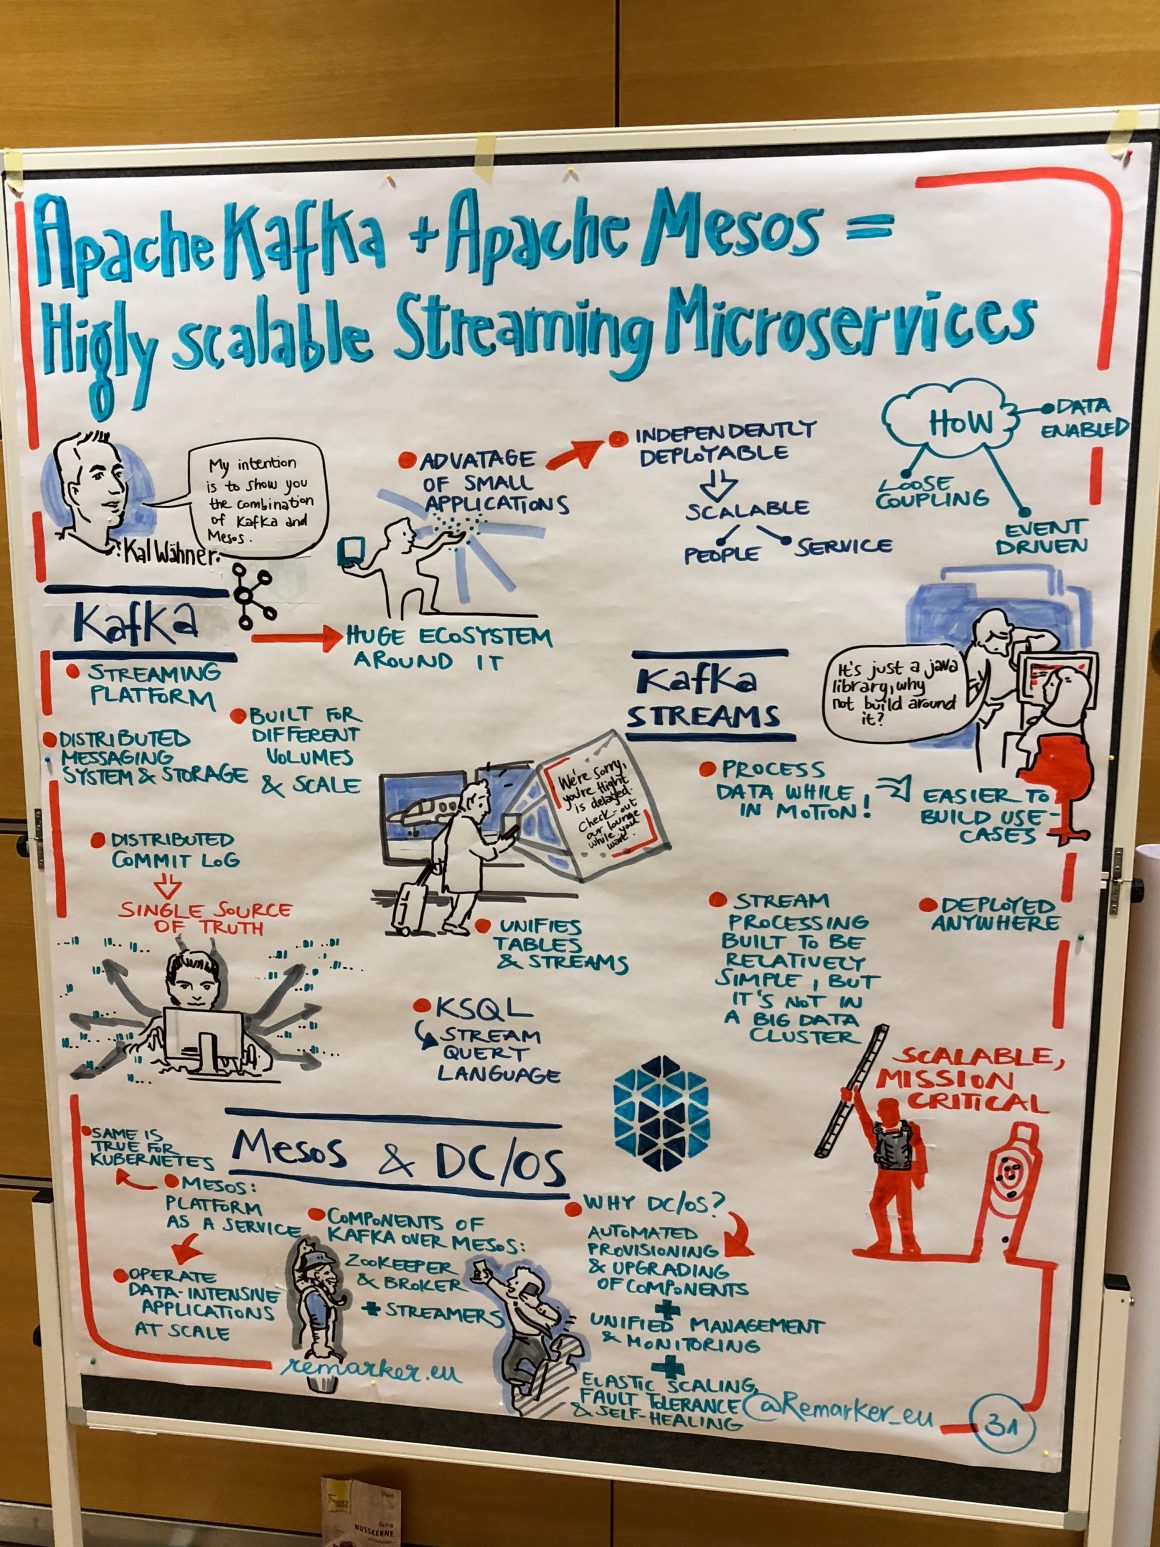 Apache Kafka + Apache Mesos =
Higly scalable Streaming Microservices
My intention
is to show you
the combination
of Kafka and
Mesos.
Kal Wähner
ADVATAGE
OF SMALL
APPLICATIONS
INDEPENDENTLY
DEPLOYABLE
SCALABLE
PEOPLE
SERVICE
HOW
DATA
ENABLED
LOOSE
COUPLING
EVENT
DRIVEN
Kafka
HUGE ECOSYSTEM
AROUND IT
STREAMING
PLATFORM
DISTRIBUTED
MESSAGING
SYSTEM & STORAGE
BUILT FOR
DIFFERENT
VOLUMES
& SCALE
DISTRIBUTED
COMMIT LOG
SINGLE SOURCE
OF TRUTH
Kafka
STREAMS
It's just a java
library, why
not build around
it?
We're sorry,
you're flight
is delayed.
Check-out
our lounge
while you
wait.
PROCESS
DATA WHILE
IN MOTION!
EASIER TO
BUILD USE-
CASES
UNIFIES
TABLES
& STREAMS
STREAM
PROCESSING
BUILT TO BE
RELATIVELY
SIMPLE, BUT
IT'S NOT IN
A BIG DATA
CLUSTER
DEPLOYED
ANYWHERE
KSQL
STREAM
QUERT
LANGUAGE
SCALABLE,
MISSION
CRITICAL
Mesos & DC/OS
SAME IS
TRUE FOR
KUBERNETES
MESOS:
PLATFORM
AS A SERVICE
OPERATE
DATA-INTENSIVE
APPLICATIONS
AT SCALE
COMPONENTS OF
KAFKA OVER MESOS:
ZOOKEEPER
& BROKER
+ STREAMERS
WHY DC/OS?
AUTOMATED
PROVISIONING
& UPGRADING
OF COMPONENTS
+
UNIFIED MANAGEMENT
& MONITORING
+
ELASTIC SCALING,
FAULT TOLERANCE
& SELF-HEALING
remarker.eu
@Remarker_eu
31
NUSSKERNE